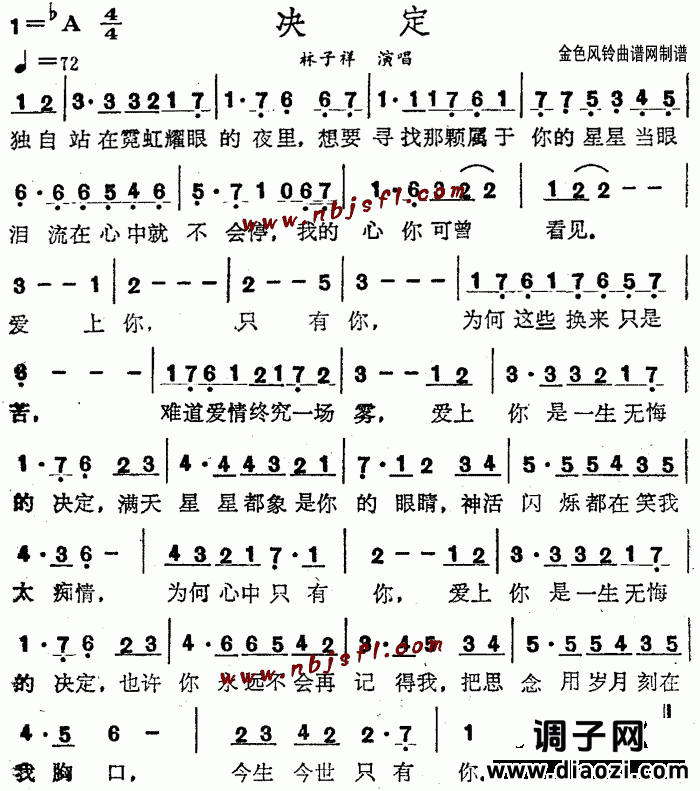 1=♭A 4/4 决 定
♩=72 林子祥 演唱 金色风铃曲谱网制谱
1 2 | 3·3 3 2 1 7 | 1·7 6 6 7 | 1·1 1 7 6 1 | 7 7 5 3 4 5 |
独自站在霓虹耀眼的夜里,想要寻找那颗属于你的星星当眼
6·6 6 5 4 6 | 5·7 1 0 6 7 | 1·6 3 2 2 | 1 2 2 - - |
泪流在心中就不会停,我的心你可曾看见。
www.nbjsfl.com
3 - - 1 | 2 - - - | 2 - - 5 | 3 - - - | 1 7 6 1 7 6 5 7 |
爱上你,只有你,为何这些换来只是
6 - - - | 1 7 6 1 2 1 7 2 | 3 - - 1 2 | 3·3 3 2 1 7 |
苦,难道爱情终究一场雾,爱上你是一生无悔
1·7 6 2 3 | 4·4 4 3 2 1 | 7·1 2 3 4 | 5·5 5 4 3 5 |
的决定,满天星星都象是你的眼睛,神活闪烁都在笑我
4·3 6 - | 4 3 2 1 7·1 | 2 - - 1 2 | 3·3 3 2 1 7 |
太痴情,为何心中只有你,爱上你是一生无悔
1·7 6 2 3 | 4·6 6 5 4 2 | 3·4 5 3 4 | 5·5 5 4 3 5 |
的决定,也许你永远不会再记得我,把思念用岁月刻在
www.nbjsfl.com
4·5 6 - | 2 3 4 4 2·7 | 1
我胸口,今生今世只有你.
调子网
www.diaozi.com